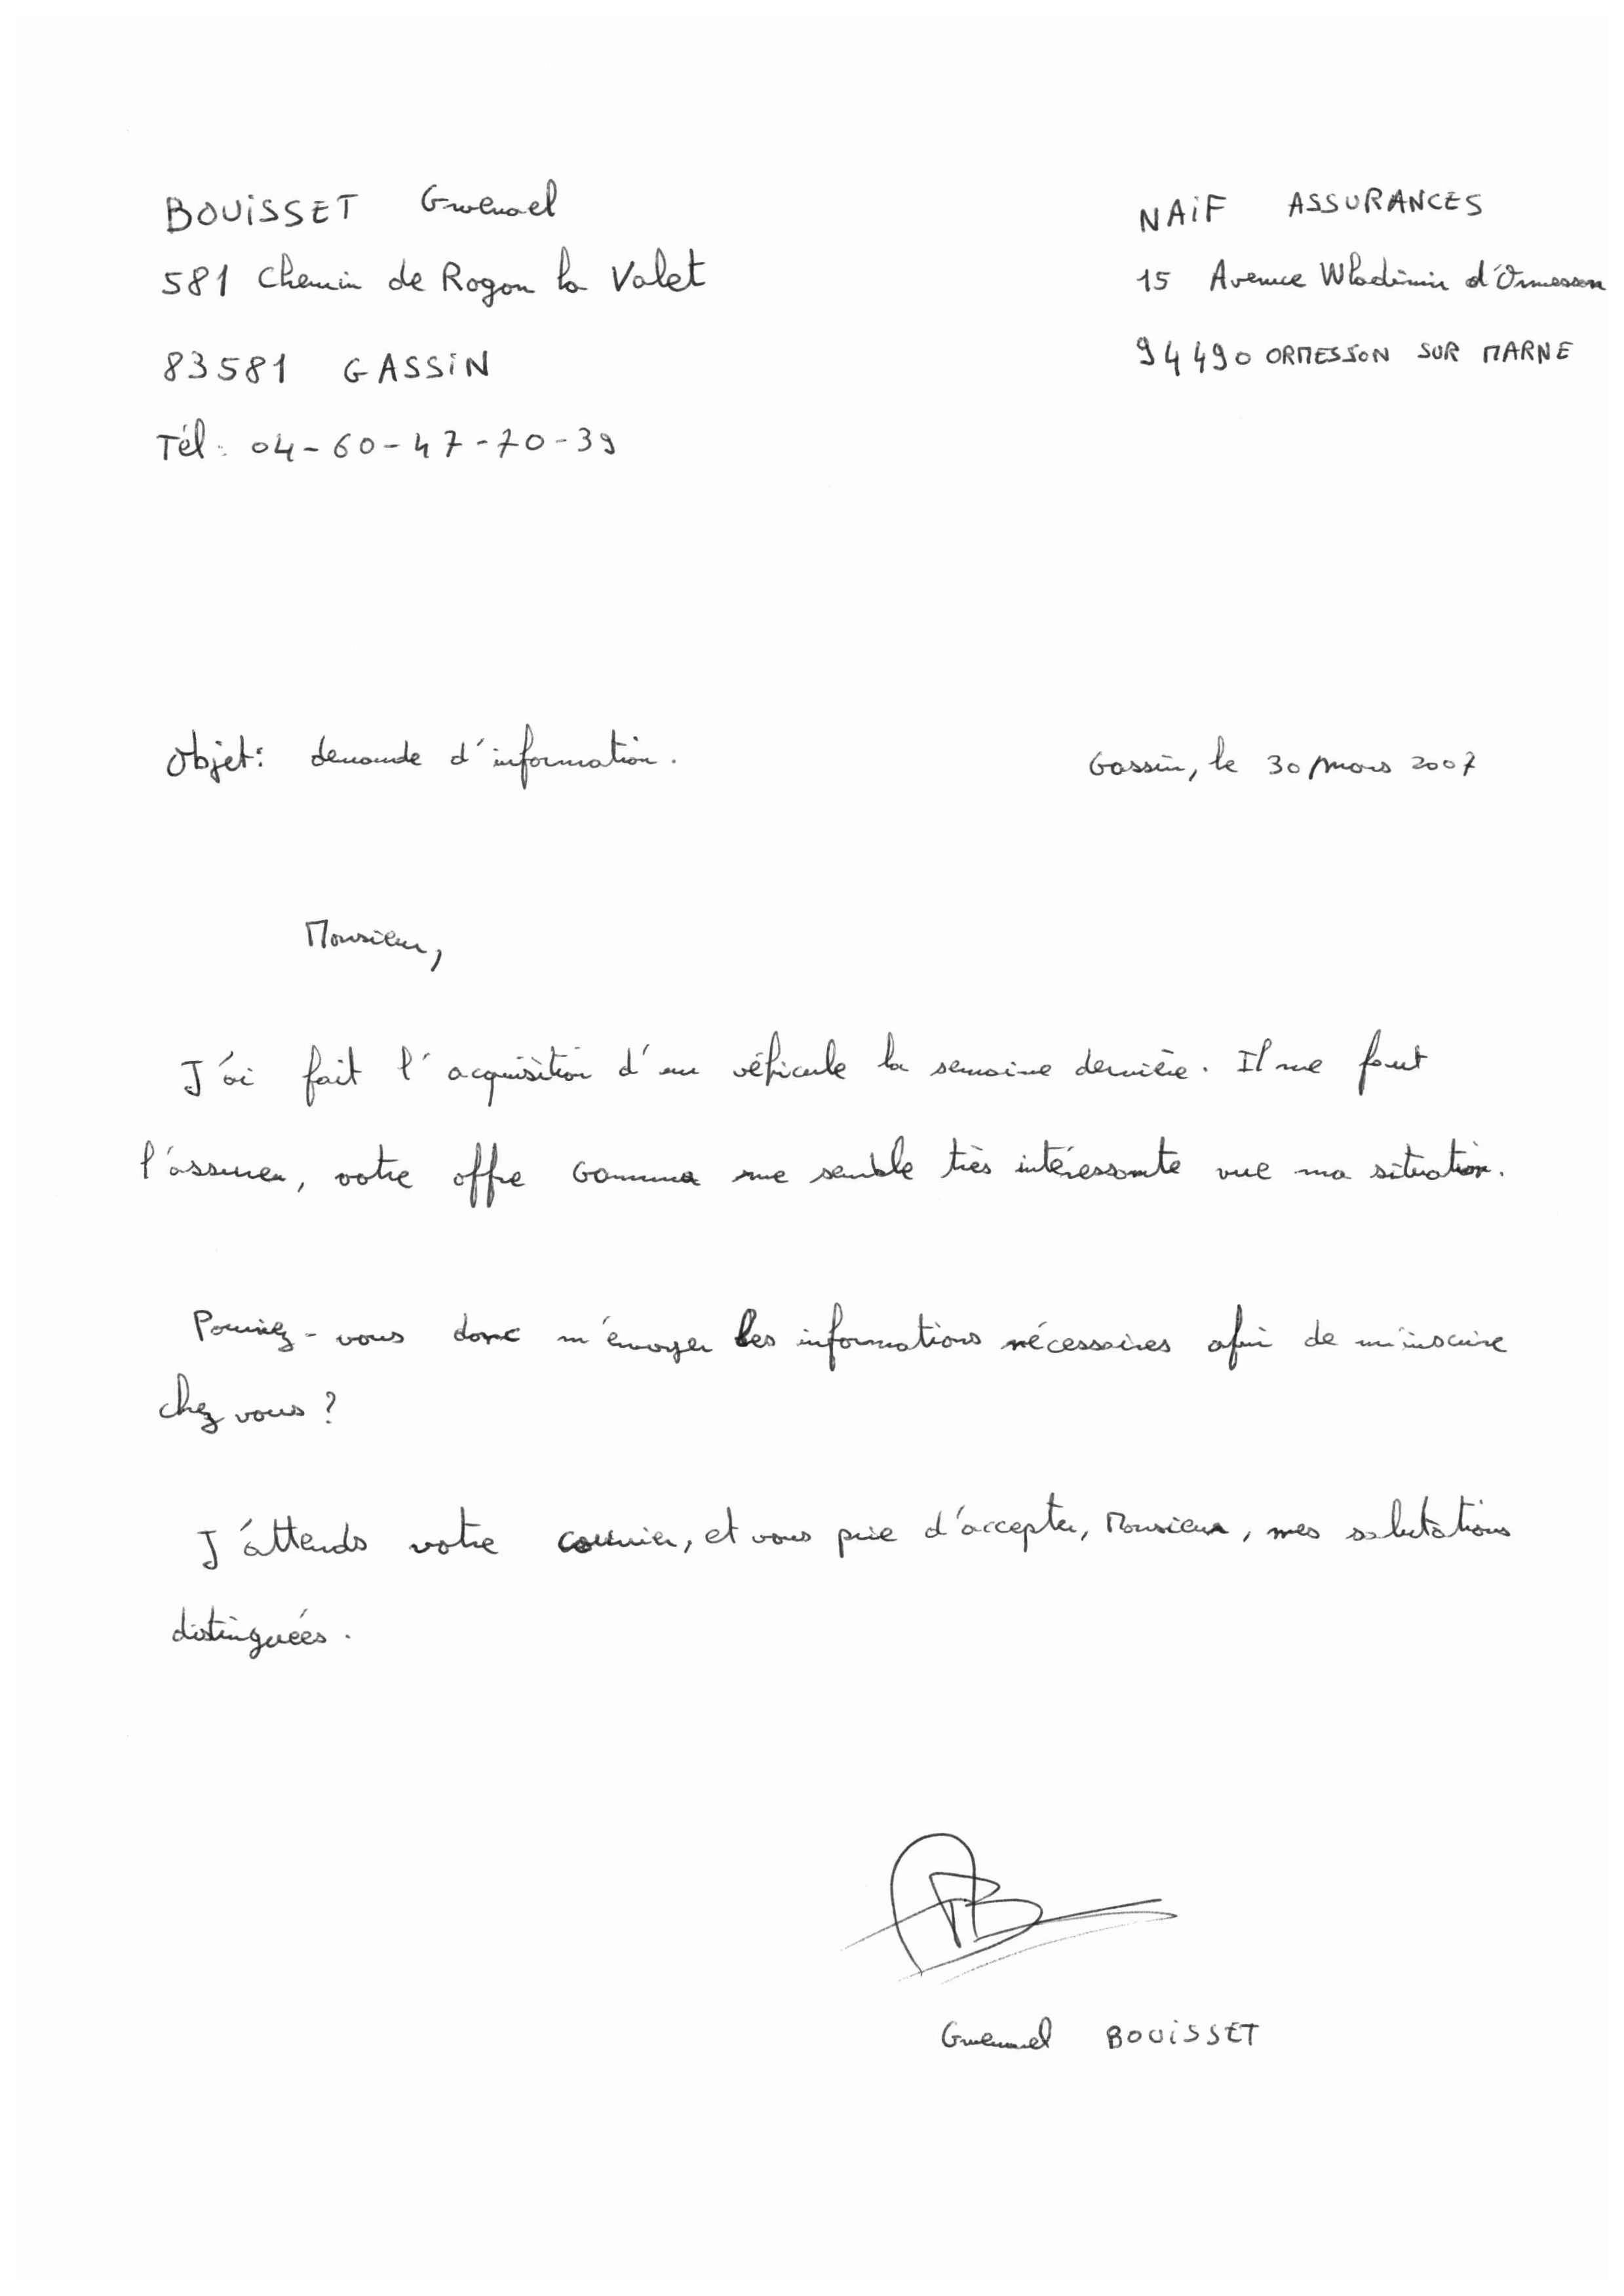 BOUISSET Gwenael
581 Chemin de Rogon la Valet
83581 GASSIN
Tél : 04-60-47-70-39
NAIF ASSURANCES
15 Avenue Wladimir d'Ormesson
94490 ORMESSON SUR MARNE
Objet : demande d'information.
Gassin, le 30 mars 2007
Monsieur,
J'ai fait l'acquisition d'un véhicule la semaine dernière. Il me faut
l'assurer, votre offre Gamma me semble très intéressante vue ma situation.
Pourriez-vous donc m'envoyer les informations nécessaires afin de m'inscrire
chez vous ?
J'attends votre courrier, et vous prie d'accepter, Monsieur, mes salutations
distinguées.
Gwenael BOUISSET